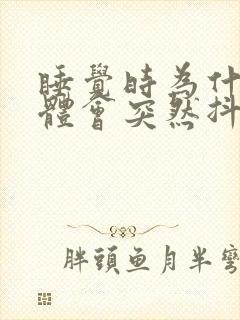 睡覺時為什
體會突然抖
胖頭魚月半彎